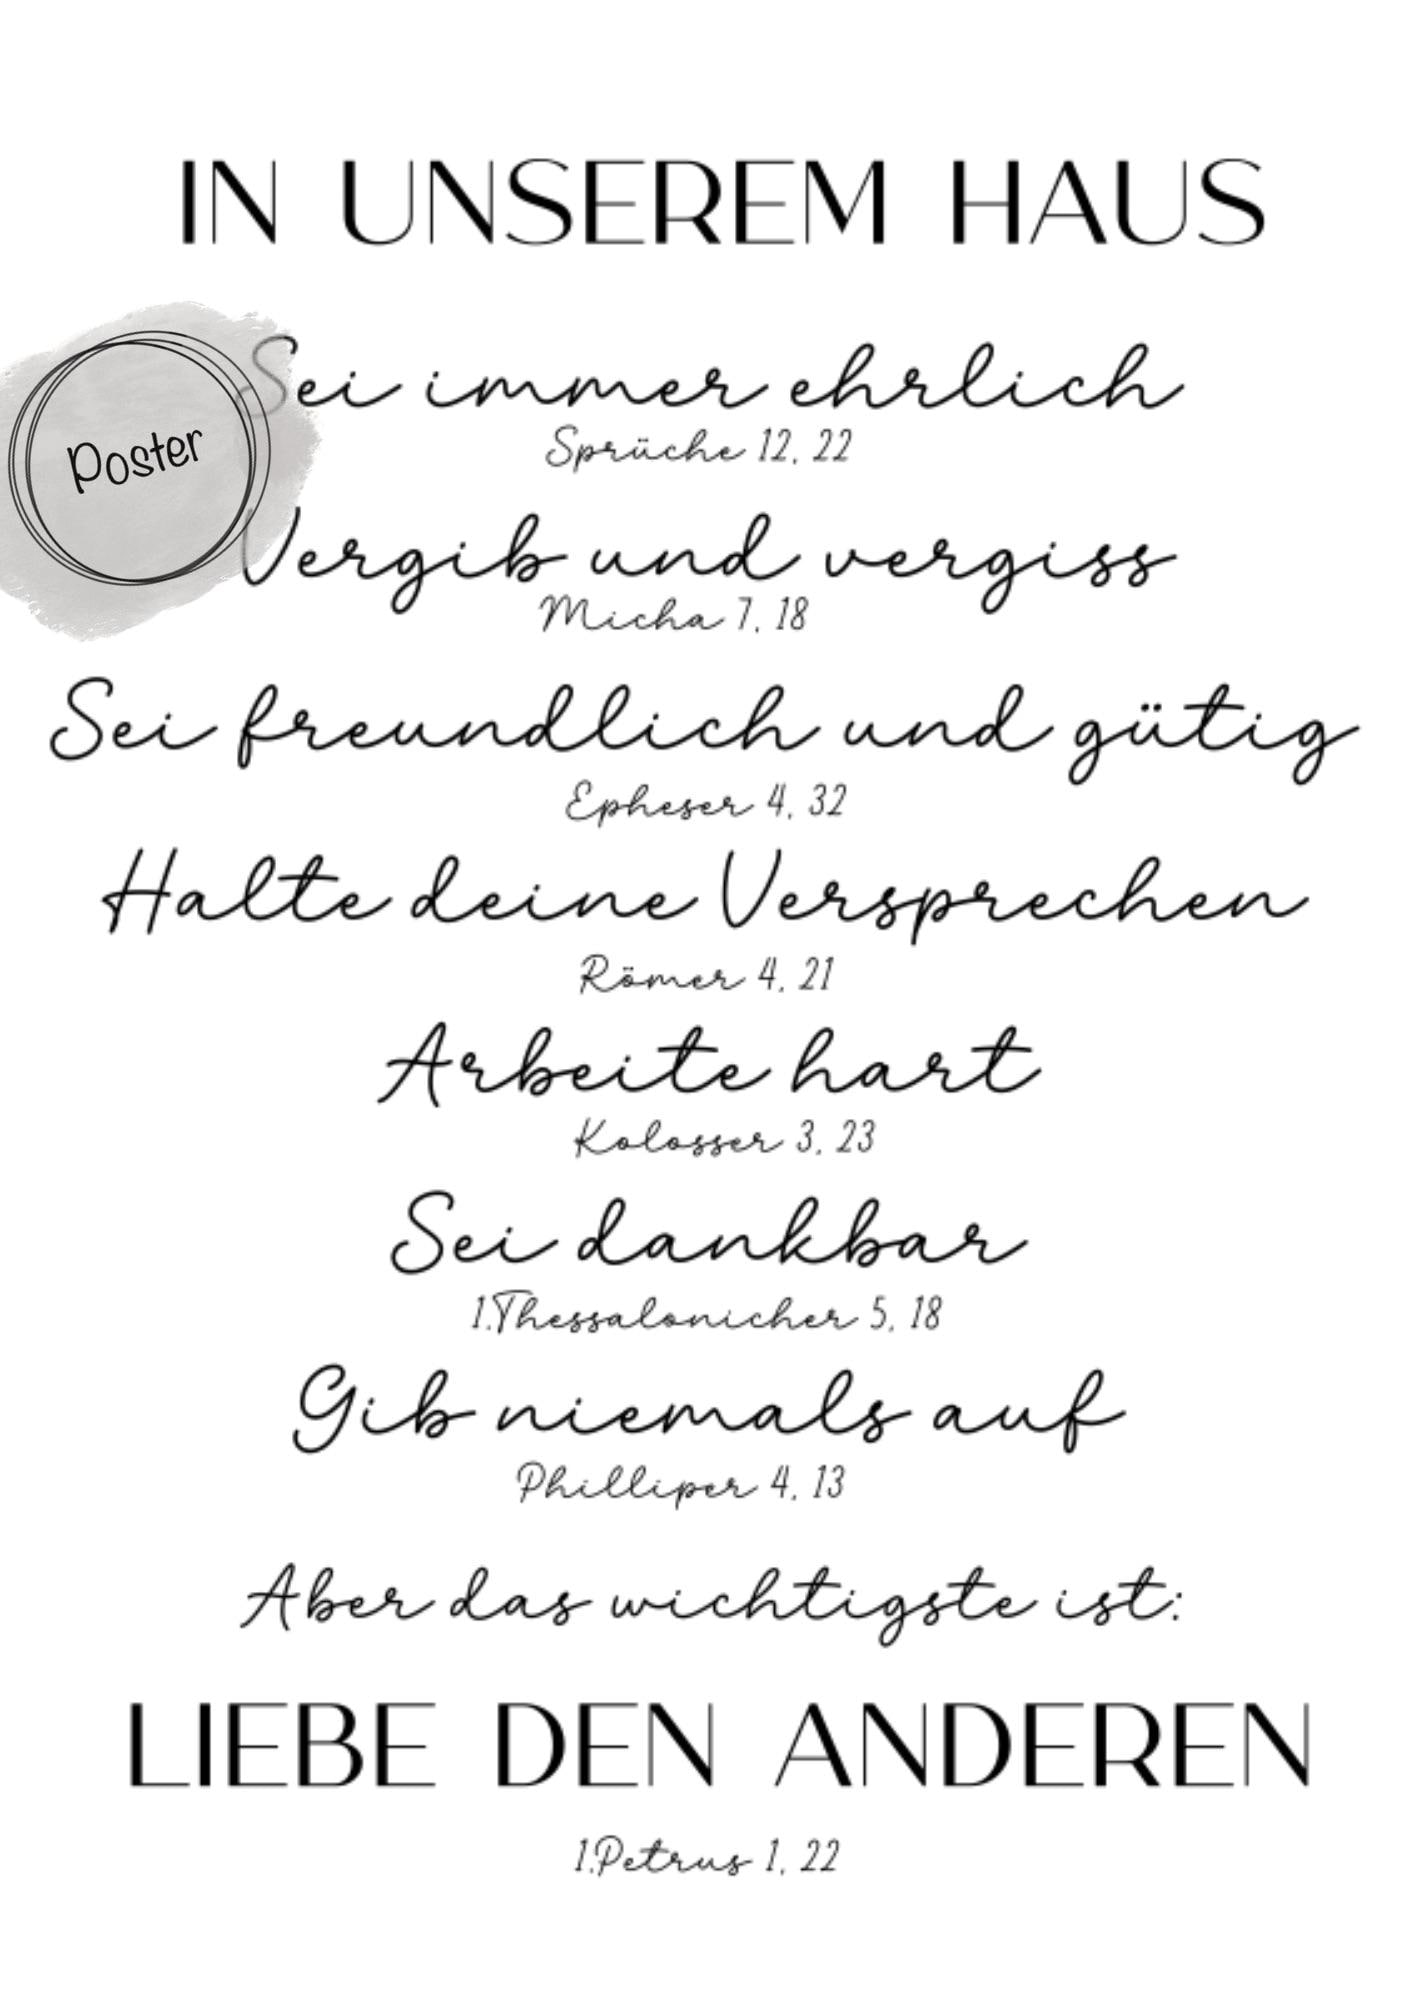 IN UNSEREM HAUS
Poster
Sei immer ehrlich
Sprüche 12, 22
Vergib und vergiss
Micha 7, 18
Sei freundlich und gütig
Epheser 4, 32
Halte deine Versprechen
Römer 4, 21
Arbeite hart
Kolosser 3, 23
Sei dankbar
1.Thessalonicher 5, 18
Gib niemals auf
Philliper 4, 13
Aber das wichtigste ist:
LIEBE DEN ANDEREN
1.Petrus 1, 22